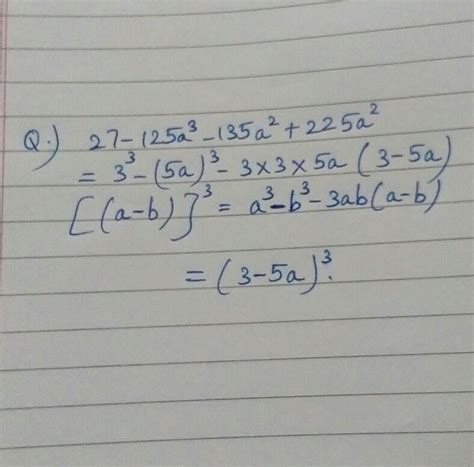 Q.) 27-125a³-135a²+225a²
= 3³-(5a)³-3×3×5a (3-5a)
[(a-b)]³= a³-b³-3ab(a-b)
= (3-5a)³.